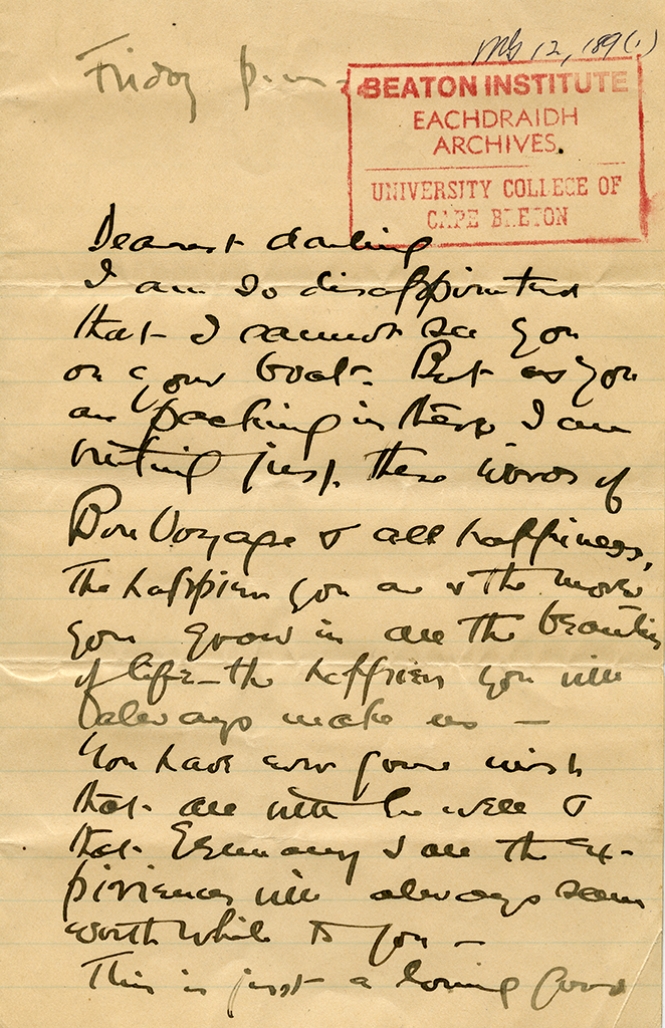 MG 12, 189(1)
Friday p.m -
BEATON INSTITUTE
EACHDRAIDH
ARCHIVES.
UNIVERSITY COLLEGE OF
CAPE BRETON
Dearest darling
I am so disappointed
that I cannot see you
on your boat. But as you
are packing in there I am
writing just these words of
Bon Voyage & all happiness,
The happier you are & the more
you grow in all the beauties
of life - the happier you will
always make us -
You have every good wish
that all will be well &
that Germany & all the ex-
periences will always seem
worth while to you -
This is just a loving good